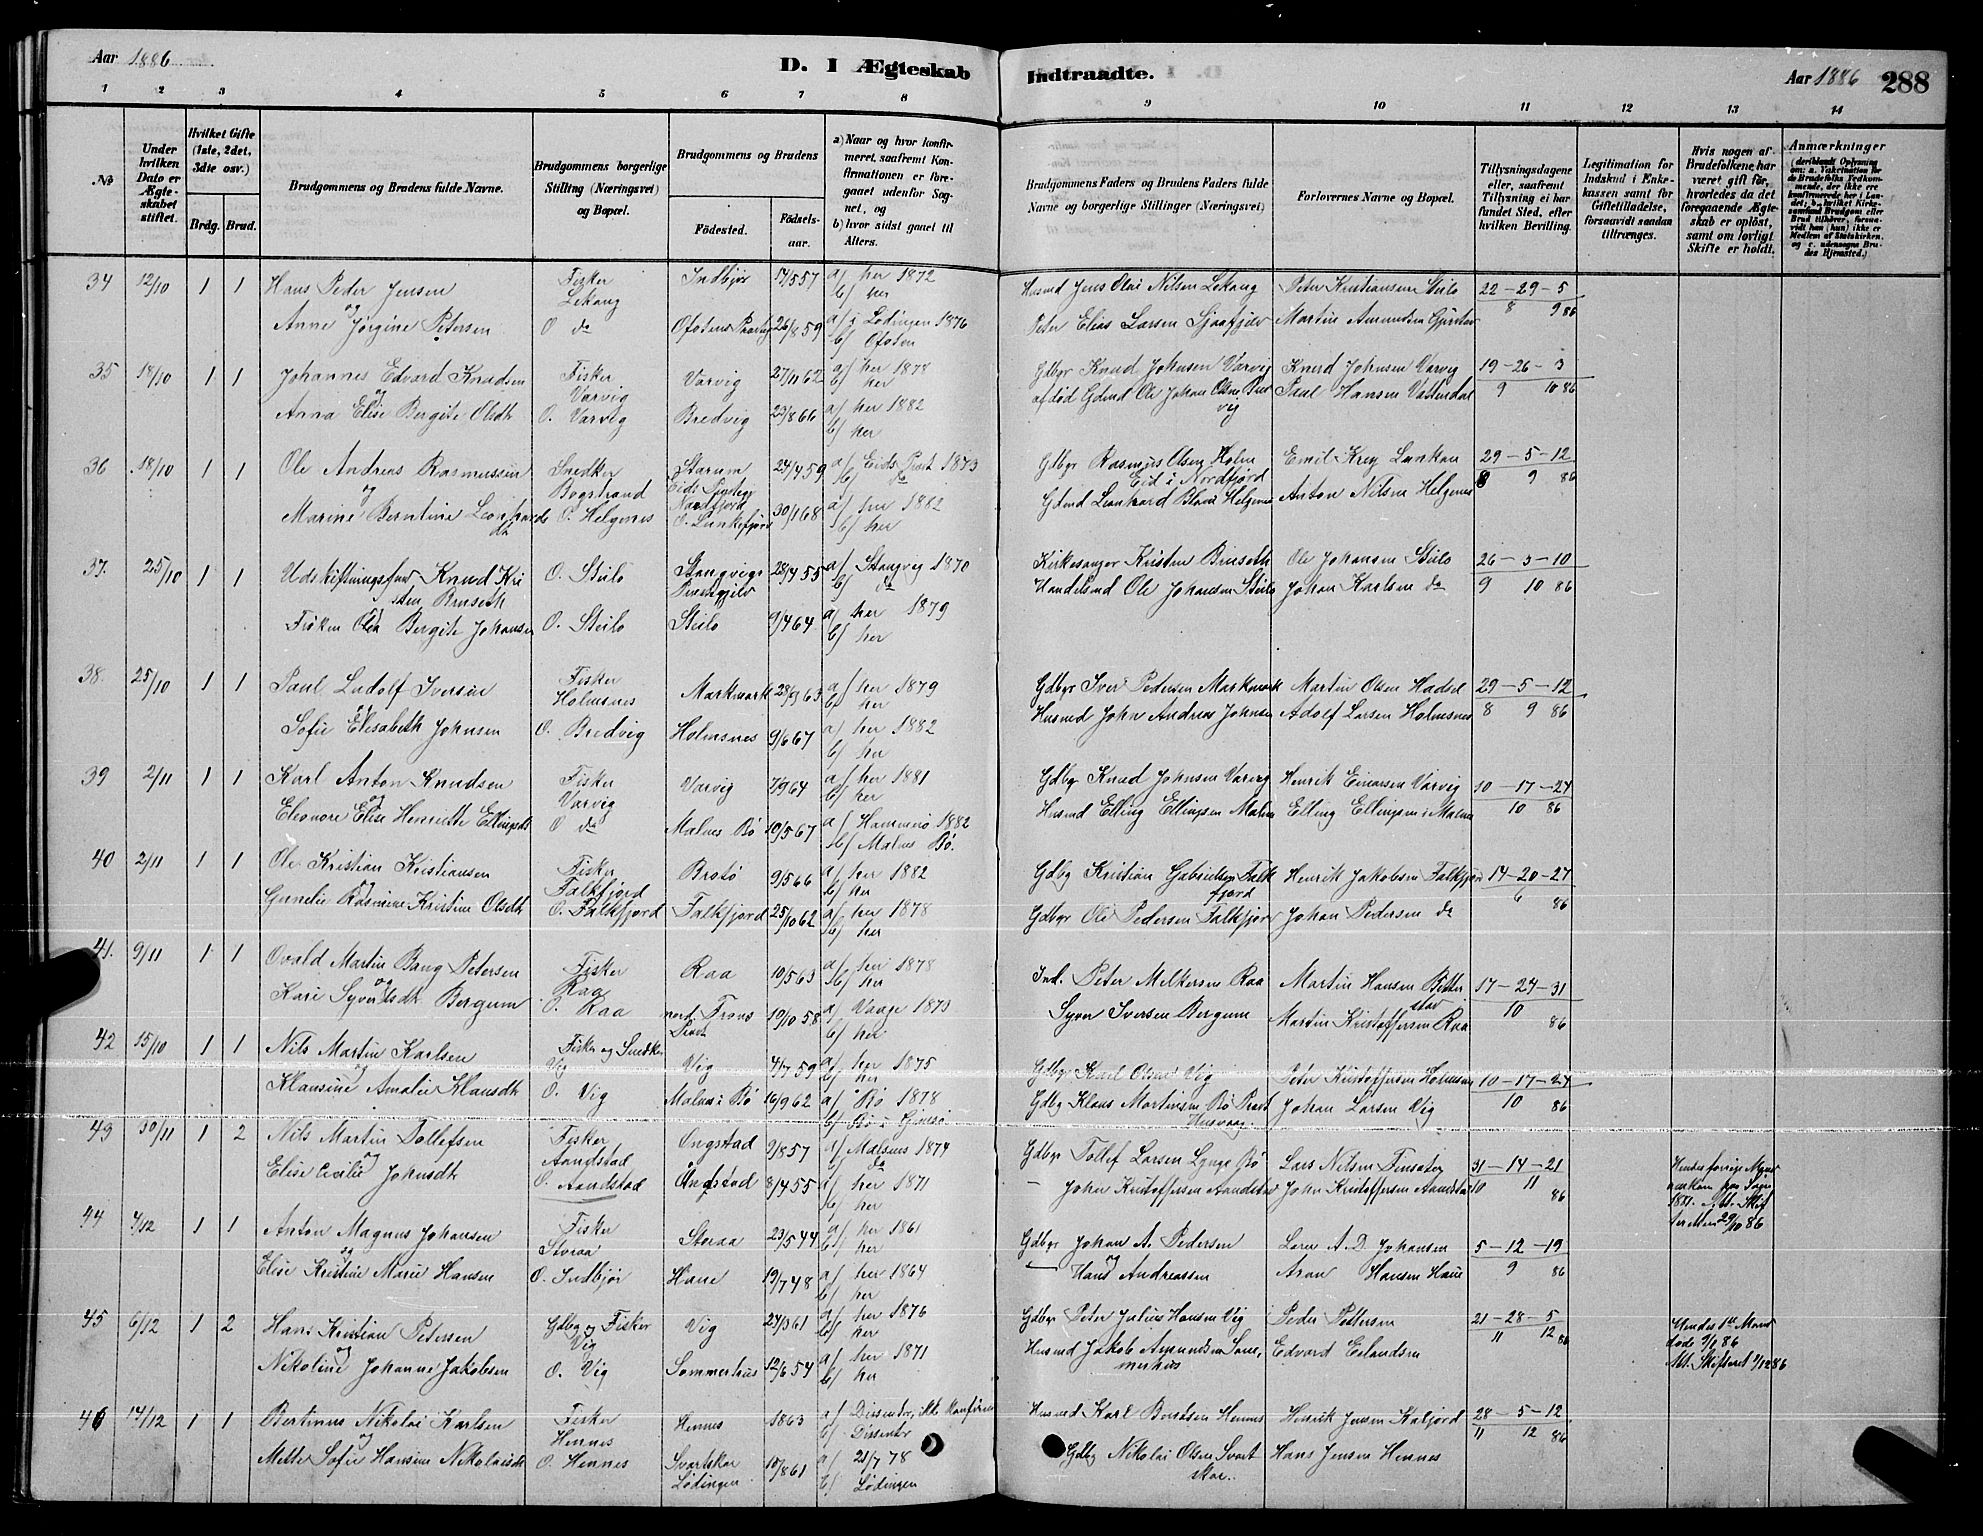 Aar 1886
D. I Ægteskab
Indtraadte.
Aar 1886 288
1 2 3 4 5 6 7 8
9 10 11 12 13 14
No
Under hvilken Dato er Ægteskabet stiftet.
Hvilket Gifte (1ste, 2det, 3die osv.)
Brdg. Brud.
Brudgommens og Brudens fulde Navne.
Brudgommens borgerlige Stilling (Næringsvei) og Bopæl.
Brudgommens og Brudens
Fødested.
Fødselsaar.
a) Naar og hvor konfirmeret, saafremt Konfirmationen er foregaaet udenfor Sognet, og
b) hvor sidst gaaet til Alters.
Brudgommens Faders og Brudens Faders fulde Navne og borgerlige Stillinger (Næringsvei)
Forlovernes Navne og Bopæl.
Tillysningsdagene eller, saafremt Tillysning ei har fundet Sted, efter hvilken Bevilling.
Legitimation for Indskud i Enkekassen samt for Giftetilladelse, forsaavidt saadan tiltrænges.
Hvis nogen af Brudefolkene har været gift før, hvorledes da det foregaaende Ægteskab er opløst, samt om lovligt Skifte er holdt.
Anmærkninger
34 12/10 1 1 Hans Peder Jensen Fisker Lekang Indbjør 17/5 57 a/ her 1872 b/ her
og
Anne Jørgine Petersen O do Ofotens 26/8 59 a/ i Lødingen 1876 b/ Ofoten
Husmd Jens Olai Nilsen Lekang Peter Kristiansen Steilo 22-29-5
Peter Elias Larsen Martin Amundsen 8 9 86
35 18/10 1 1 Johannes Edvard Knudsen Fisker Varvig Varvig 27/11 62 a/ her 1878 b/ her
og
Anna Elise Bergite Olsdt O. Varvig Bredvig 22/8 66 a/ her 1882 b/ her
Gdbgr Knud Johnsen Varvig Knud Johnsen Varvig 19-26-3
afdød Gdmd Ole Johan Olsen Bredvig Paul Hansen Vottendal 9 10 86
36 18/10 1 1 Ole Andreas Rasmussen Snedker Bogstrand Starum Eids Nordfjord 24/4 59 a/ Eids Prst 1873 b/ do
og
Marine Berntine Leonhardsdt O. Helgenes O. Lunkefjord 30/1 68 a/ her 1882 b/ her
Gdbgr Rasmus Olsen Holm Eid i Nordfjord Emil Krey Lunkan 29-5-12
Gdmd Leonhard Helgenes Anton Nilsen Helgenes 8 9 86
37. 25/10 1 1 Udskiftningsfmd Knud Kristen Bruseth O. Steilo Stangvigs Prestegjeld 28/4 55 a/ Stangvig 1870 b/ do
Frøken Olea Bergite Johansen O. Steilo Steilo 9/4 64 a/ her 1879 b/ her
Kirkesanger Kristen Bruseth Ole Johansen Steilo 26-3-10
Handelsmd Ole Johansen Steilo Johan Karlsen do 9 10 86
38. 25/10 1 1 Paul Ludolf Iversen Fisker Holmsnes Markmark 28/9 63 a/ her 1879 b/ her
Sofie Elisabeth Johnsen O. Bredvig Holmsnes 9/6 67 a/ her 1882 b/ her
Gdbgr Iver Pedersen Martin Olsen Hadsel 29-5-12
Husmd John Andreas Johnsen Adolf Larsen Holmsnes 8 9 86
39 2/11 1 1 Karl Anton Knudsen Fisker Varvig Varvig 7/9 64 a/ her 1881 b/ her
og
Eleonore Elise Henriette Ellingsdt O do Malnes Bø 19/5 67 a/ Hammerø 1882 b/ Malnes Bø.
Gdbgr Knud Johnsen Varvig Henrik Einarsen Varvig 10-17-24
Husmd Elling Ellingsen Malnes Elling Ellingsen i Malnes 10 86
40 2/11 1 1 Ole Kristian Kristiansen Fisker Falkfjord Brotø 9/5 66 a/ her 1882 b/ her
og
Gunelie Rasmine Kristine Olsdt O. Falkfjord Falkfjord 25/10 62 a/ her 1878 b/ her
Gdbg Kristian Gabrielsen Falkfjord Henrik Jakobsen Falkfjord 14-20-27
Gdbgr Ole Pedersen Falkfjord Johan Pedersen do 6 86
41. 9/11 1 1 Ovald Martin Bang Petersen Fisker Raa Raa 19/5 63 a/ her 1878 b/ her
og
Kari Syvertsdt Bergum O. Raa nord Frons Prst 19/10 58 a/ Vaage 1873 b/ her
Ind. Peter Melkersen Raa Martin Hansen 17-24-31
Syver Iversen Bergum Martin Kristoffersen Raa 10 86
42 15/10 1 1 Nils Martin Karlsen Fisker og Snedker Vig Vig 4/7 59 a/ her 1875 b/ her
og
Klausine Amalie Klausdt O. Vig Malnes i Bø 16/9 62 a/ Bø 1878 b/ Bø i
Gdbgr Karl Olsen Vig Peter Kristoffersen Holmsnes 10-17-24
Gdbg Klaus Martinsen Bø Prst Johan Larsen Vig 10 86
43 30/11 1 2 Nils Martin Tollefsen Fisker Aandstad Ongstad 9/8 57 a/ Malnes 1874 b/ do
og
Elise Cecilie Johnsdt O. Aandstad Ongstad 8/4 55 a/ her 1871 b/ her
Gdbgr Tollef Larsen Lynge Bø Lars Nilsen 31-14-21
— John Kristoffersen Aandstad John Kristoffersen Aandstad 10 11 86
Hendes forrige Mand omkom paa 1881. Att. Skifteretten 29/10 86
44 4/12 1 1 Anton Magnus Johansen Fisker Storaa Storaa 23/5 44 a/ her 1861 b/ her
og
Elise Kristine Marie Hansen O. Indbjør Hane 19/7 48 a/ her 1864 b/ her
Gdbgr Johan A. Pedersen Lars A. D. Johansen 5-12-19
— Hans Andreassen Aron Hansen Haue 9 86
45 6/12 1 2 Hans Kristian Petersen Gdbg og Fisker Vig Vig 24/3 61 a/ her 1876 b/ her
og
Nikoline Johanne Jakobsen O. Vig Sommerhus 12/6 54 a/ her 1871 b/ her
Gdbgr Peter Julius Hansen Vig Peder Pettersen 21-28-5
Husmd Jakob Amundsen Sommerhus Edvard Erlandsen 11 12 86
Hendes 1st Mand døde 9/1 86 Att. Skifteret 2/12 86
46 14/12 1 1 Bertinus Nikolai Karlsen Fisker Hennes Hennes 1863 a/ Dissenter, ikke konfirm b/ Dissenter
og
Mette Sofie Hansine Nikolaisdt O. Hennes Svartskar Lødingen 19/8 61 a/ 21/7 78 b/ Lødingen
Husmd Karl Berntsen Hennes Henrik Jensen Kaljord 28-5-12
Gdbg Nikolai Olsen Svartskar. Hans Jensen Hennes 11 12 86